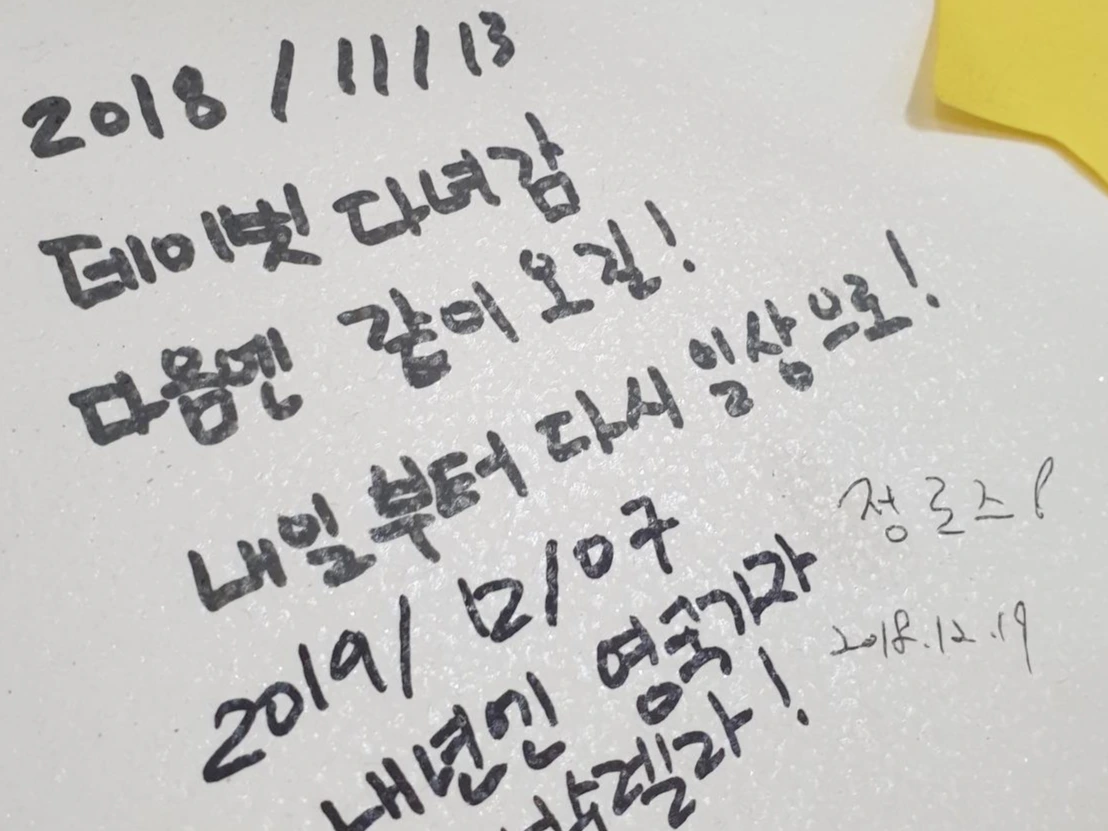 2018 / 11 / 13
데이벗 다녀감
다음엔 같이 오길!
내일부터 다시 일상으로!
2019/ 12/07
내년엔 영국가자
젤라!
정로즈
2018.12.19